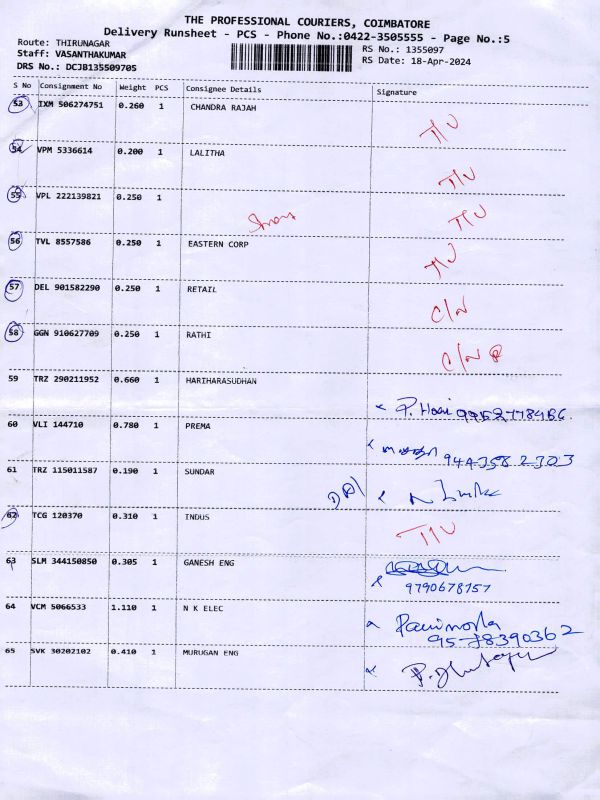 THE PROFESSIONAL COURIERS, COIMBATORE
Delivery Runsheet - PCS - Phone No.:0422-3505555 - Page No.:5
Route: THIRUNAGAR RS No.: 1355097
Staff: VASANTHAKUMAR RS Date: 18-Apr-2024
DRS No.: DCJB135509705
S No Consignment No Weight PCS Consignee Details Signature
53 IXM 506274751 0.260 1 CHANDRA RAJAH
T/U
54 VPM 5336614 0.200 1 LALITHA
T/U
55 VPL 222139821 0.250 1
T/U
56 TVL 8557586 0.250 1 EASTERN CORP
T/U
57 DEL 901582290 0.250 1 RETAIL
C/N
58 GGN 910627709 0.250 1 RATHI
C/N
59 TRZ 290211952 0.660 1 HARIHARASUDHAN
P. Hari
60 VLI 144710 0.780 1 PREMA
61 TRZ 115011587 0.190 1 SUNDAR
62 TCG 120370 0.310 1 INDUS
T/U
63 SLM 344150850 0.305 1 GANESH ENG
9790678757
64 VCM 5066533 1.110 1 N K ELEC
65 SVK 30202102 0.410 1 MURUGAN ENG